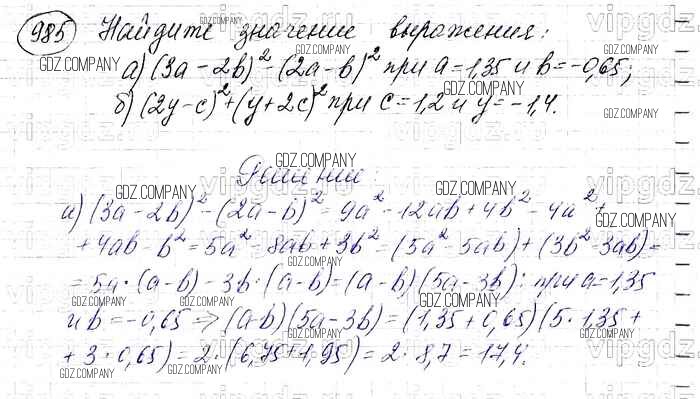 985 Найдите значение выражения:
а) (3a - 2b)² - (2a - b)² при a = 1,35 и b = -0,65;
б) (2y - c)² + (y + 2c)² при c = 1,2 и y = -1,4.
Решение:
а) (3a - 2b)² - (2a - b)² = 9a² - 12ab + 4b² - 4a² +
+ 4ab - b² = 5a² - 8ab + 3b² = (5a² - 5ab) + (3b² - 3ab) =
= 5a · (a - b) - 3b · (a - b) = (a - b) (5a - 3b): при a = 1,35
и b = -0,65 ⇒ (a - b) (5a - 3b) = (1,35 + 0,65) (5 · 1,35 +
+ 3 · 0,65) = 2 · (6,75 + 1,95) = 2 · 8,7 = 17,4.